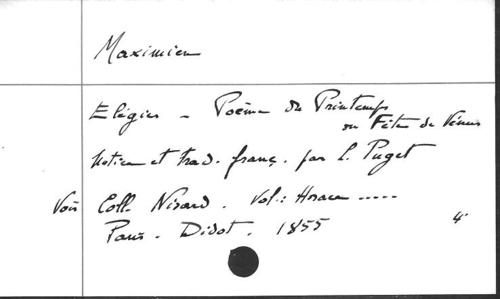 Maximien
Elégies - Poème du Printemps
ou Fête de Vénus
Notice et trad. franç. par L. Puget
Voir Coll. Nisard. Vol: Horace .....
Paris - Didot. 1855 4°